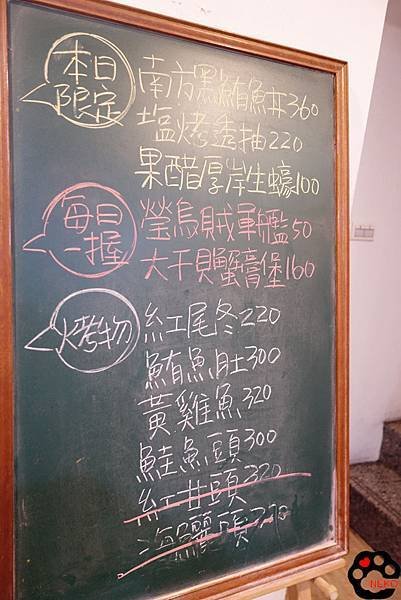 本日
限定
南方黑鮪魚丼360
塩烤透抽220
果醋厚岸生蠔100
每日
一握
螢烏賊軍艦50
大干貝蟹膏堡160
烤物
紅尾冬220
鮪魚肚300
黃雞魚320
鮭魚頭300
紅甘頭320
海鱺頭320
NEKO